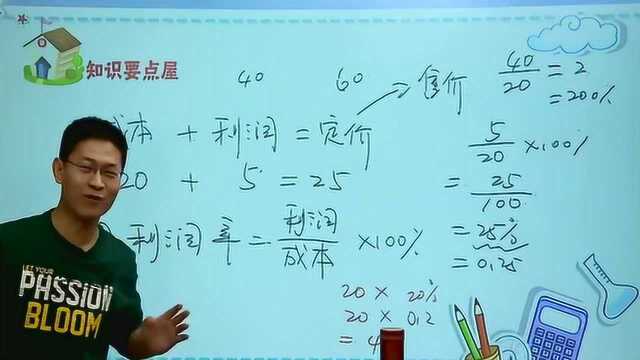 知识要点屋
40 60 售价
成本 + 利润 = 定价
20 + 5 = 25
利润率 = 利润/成本 ×100%
20 × 20%
20 × 0.2
= 4
40/20 = 2
= 200%
5/20 ×100%
= 25/100
= 25%
= 0.25
LET YOUR
PASSION
BLOOM